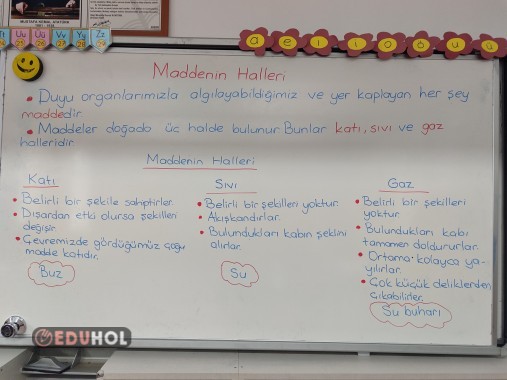 MUSTAFA KEMAL ATATÜRK
Uu Üü Vv Yy Zz
25 26 27 28 29
a e ı i o ö u ü
Maddenin Halleri
• Duyu organlarımızla algılayabildiğimiz ve yer kaplayan her şey
maddedir.
• Maddeler doğada üç halde bulunur Bunlar katı, sıvı ve gaz
halleridir.
Maddenin Halleri
Katı
• Belirli bir şekile sahiptirler.
• Dışardan etki olursa şekilleri
değişir.
• Çevremizde gördüğümüz çoğu
madde katıdır.
Buz
Sıvı
• Belirli bir şekilleri yoktur.
• Akışkandırlar.
• Bulundukları kabın şeklini
alırlar.
Su
Gaz
• Belirli bir şekilleri
yoktur.
• Bulundukları kabı
tamamen doldururlar.
• Ortama kolayca ya-
yılırlar.
• Çok küçük deliklerden
çıkabilirler.
Su buharı
EDUHOL